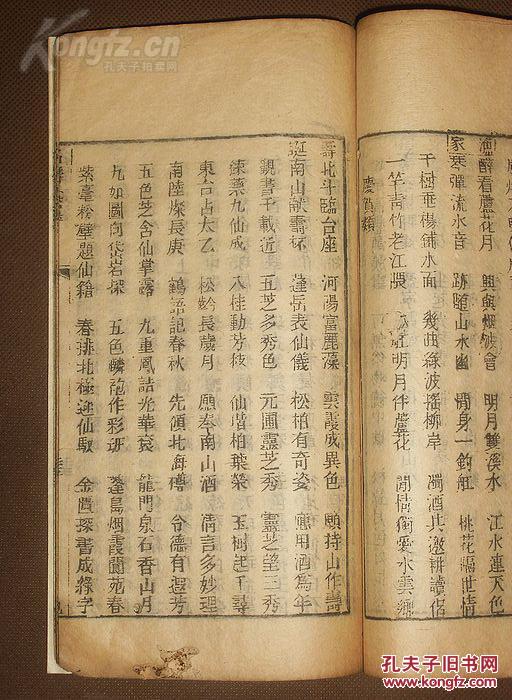 漁 醉看蘆花月 興與烟波會 明月雙溪水 江水連天色
家 琴彈流水音 跡隨山水幽 閒身一釣舡 桃花隔世情
千樹垂楊鋪水面 幾曲綠波搖柳岸 濁酒共邀耕讀侶
一竿青竹老江隈 明月伴蘆花 閒情偏愛水雲鄉
慶賀類
壽 北斗臨台座 河陽富麗藻 雲霞成異色 願持山作壽
誕 南山獻壽杯 蓬岳表仙儀 松柏有奇姿 應用酒為年
親書千載近 五芝多秀色 元圃靈芝秀 靈芝望三秀
東海九仙成 八桂動芳枝 仙階柏葉榮 玉樹起千尋
東台占太乙 松齡長歲月 願奉南山酒 清言多妙理
南陸燦長庚 鶴語記春秋 先傾北海樽 令德有遐芳
五色芝含仙掌露 九重鳳誥光華袞 龍門泉石香山月
九如圖向岱岩採 五色麟袍作彩班 蓬島烟霞閬苑春
紫毫粉壁題仙籍 春排北極迎仙馭 金匱探書成綠字
Kongfz.cn
孔夫子拍卖网
孔夫子旧书网
www.kongfz.com